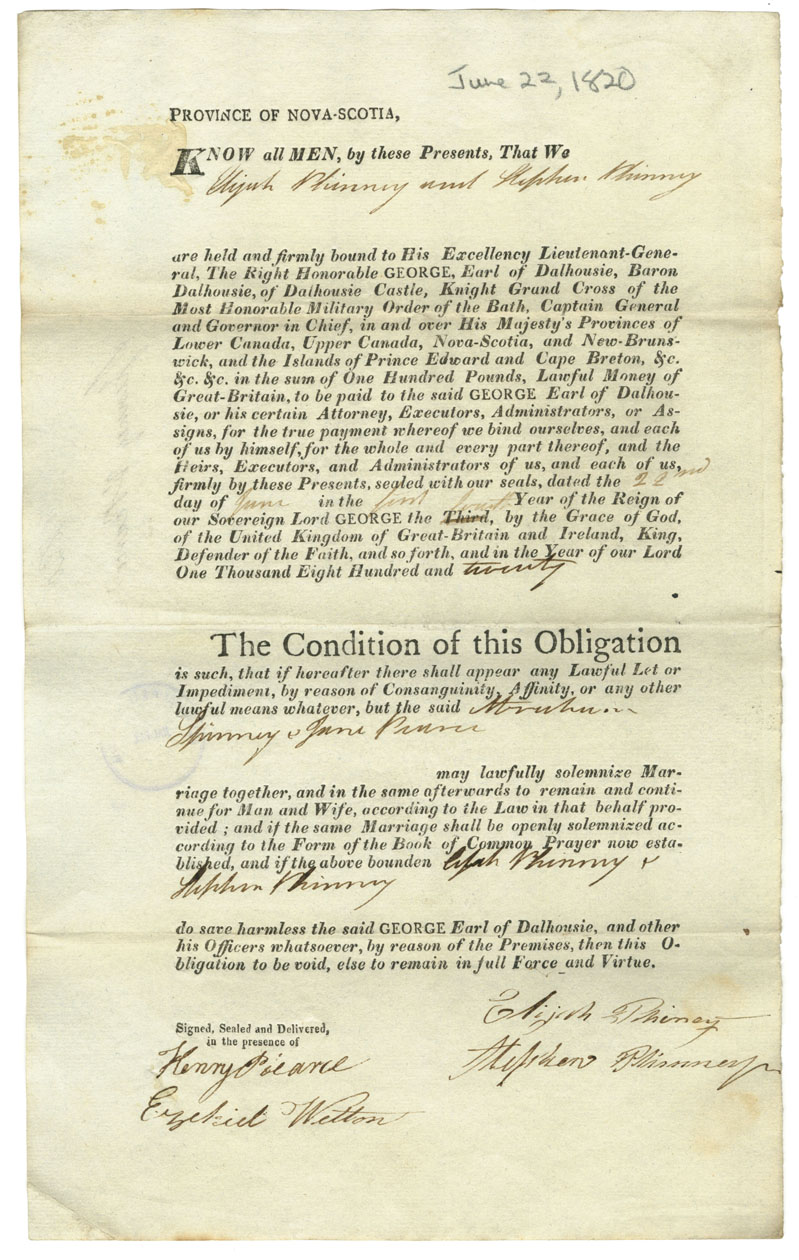 June 22, 1820
PROVINCE OF NOVA-SCOTIA,
KNOW all MEN, by these Presents, That We
Elijah Phinney and Stephen Phinney
are held and firmly bound to His Excellency Lieutenant-Gene-
ral, The Right Honorable GEORGE, Earl of Dalhousie, Baron
Dalhousie, of Dalhousie Castle, Knight Grand Cross of the
Most Honorable Military Order of the Bath, Captain General
and Governor in Chief, in and over His Majesty's Provinces of
Lower Canada, Upper Canada, Nova-Scotia, and New-Bruns-
wick, and the Islands of Prince Edward and Cape Breton, &c.
&c. &c. in the sum of One Hundred Pounds, Lawful Money of
Great-Britain, to be paid to the said GEORGE Earl of Dalhou-
sie, or his certain Attorney, Executors, Administrators, or As-
signs, for the true payment whereof we bind ourselves, and each
of us by himself, for the whole and every part thereof, and the
Heirs, Executors, and Administrators of us, and each of us,
firmly by these Presents, sealed with our seals, dated the 22nd
day of June in the first Year of the Reign of
our Sovereign Lord GEORGE the Third, by the Grace of God,
of the United Kingdom of Great-Britain and Ireland, King,
Defender of the Faith, and so forth, and in the Year of our Lord
One Thousand Eight Hundred and twenty
The Condition of this Obligation
is such, that if hereafter there shall appear any Lawful Let or
Impediment, by reason of Consanguinity, Affinity, or any other
lawful means whatever, but the said Abraham
Spinney & Jane Pearce
may lawfully solemnize Mar-
riage together, and in the same afterwards to remain and conti-
nue for Man and Wife, according to the Law in that behalf pro-
vided ; and if the same Marriage shall be openly solemnized ac-
cording to the Form of the Book of Common Prayer now esta-
blished, and if the above bounden Elijah Phinney &
Stephen Phinney
do save harmless the said GEORGE Earl of Dalhousie, and other
his Officers whatsoever, by reason of the Premises, then this O-
bligation to be void, else to remain in full Force and Virtue.
Elijah Phiney
Signed, Sealed and Delivered,
in the presence of
Stephen Phinney
Henry Piearce
Ezekiel Welton